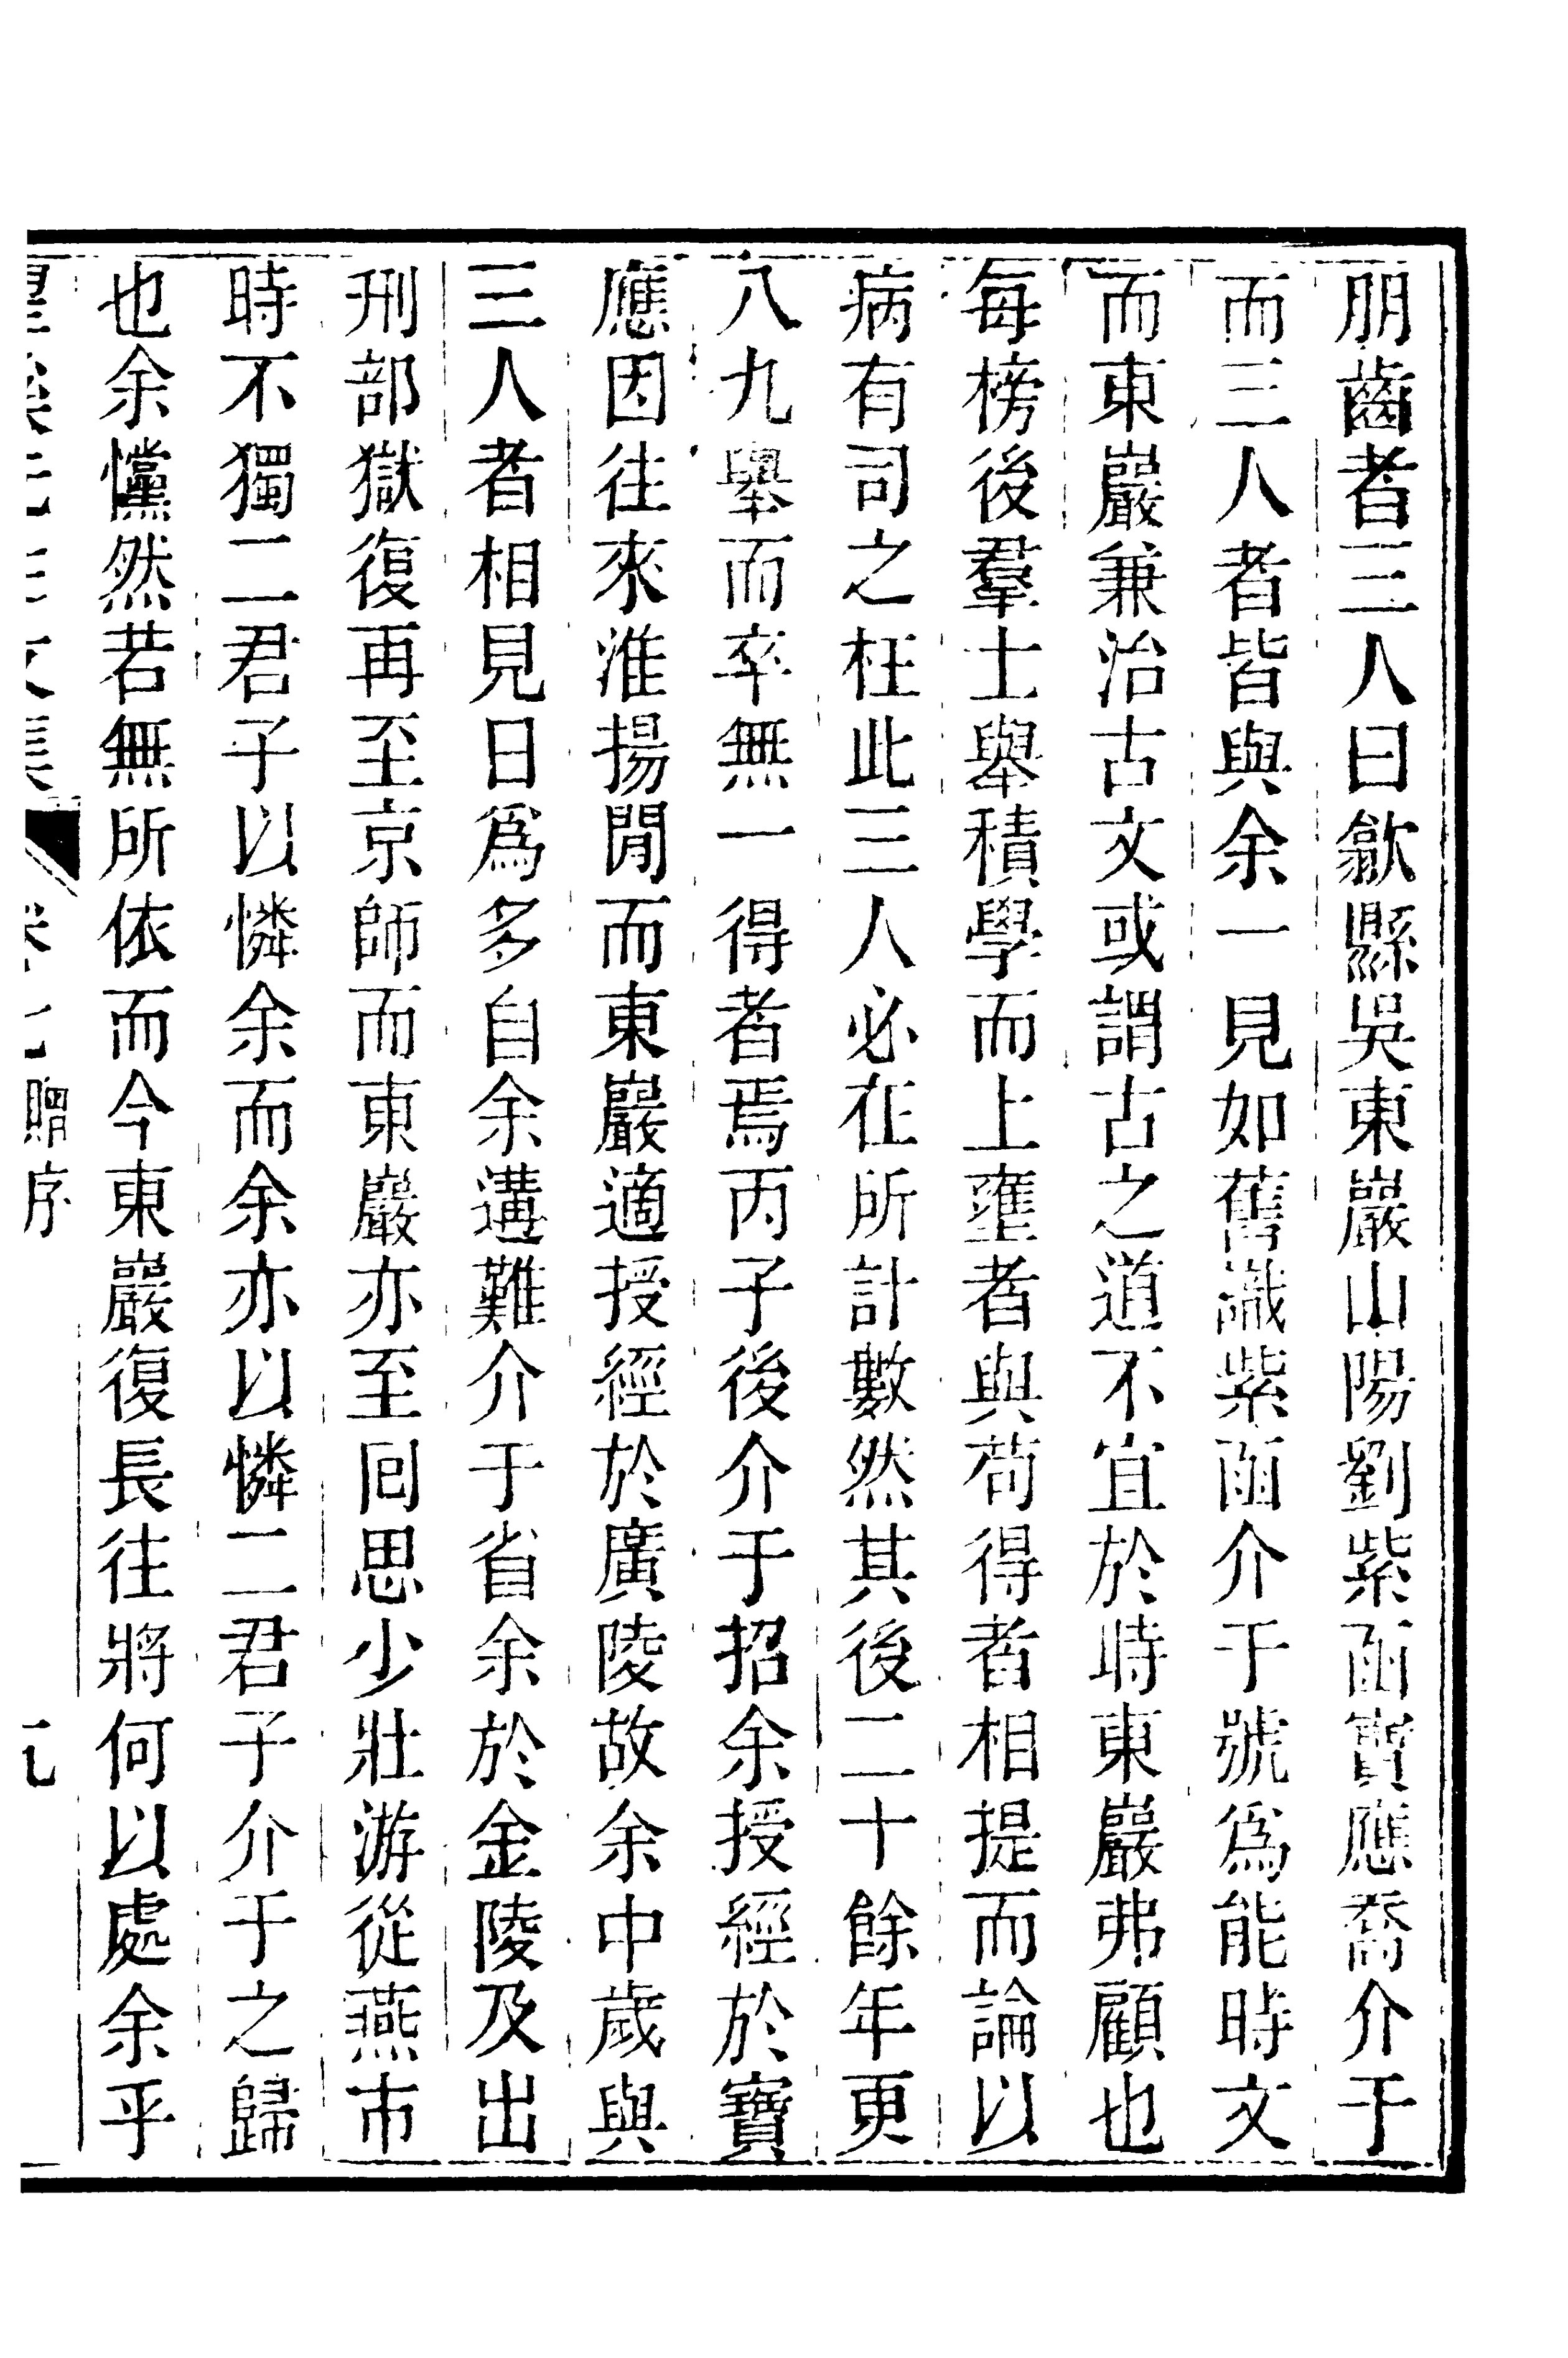 朋齒者三人曰歙縣吳東巖山陽劉紫函寶應喬介于
而三人者皆與余一見如舊識紫函介于號爲能時文
而東巖兼治古文或謂古之道不宜於時東巖弗顧也
每榜後羣士舉積學而上壅者與苟得者相提而論以
病有司之枉此三人必在所計數然其後二十餘年更
八九舉而卒無一得者焉丙子後介于招余授經於寶
應因往來淮揚閒而東巖適授經於廣陵故余中歲與
三人者相見日爲多自余遘難介于省余於金陵及出
刑部獄復再至京師而東巖亦至回思少壯游從燕市
時不獨二君子以憐余而余亦以憐二君子介于之歸
也余戃然若無所依而今東巖復長往將何以處余乎
望溪先生文集 卷七 贈序